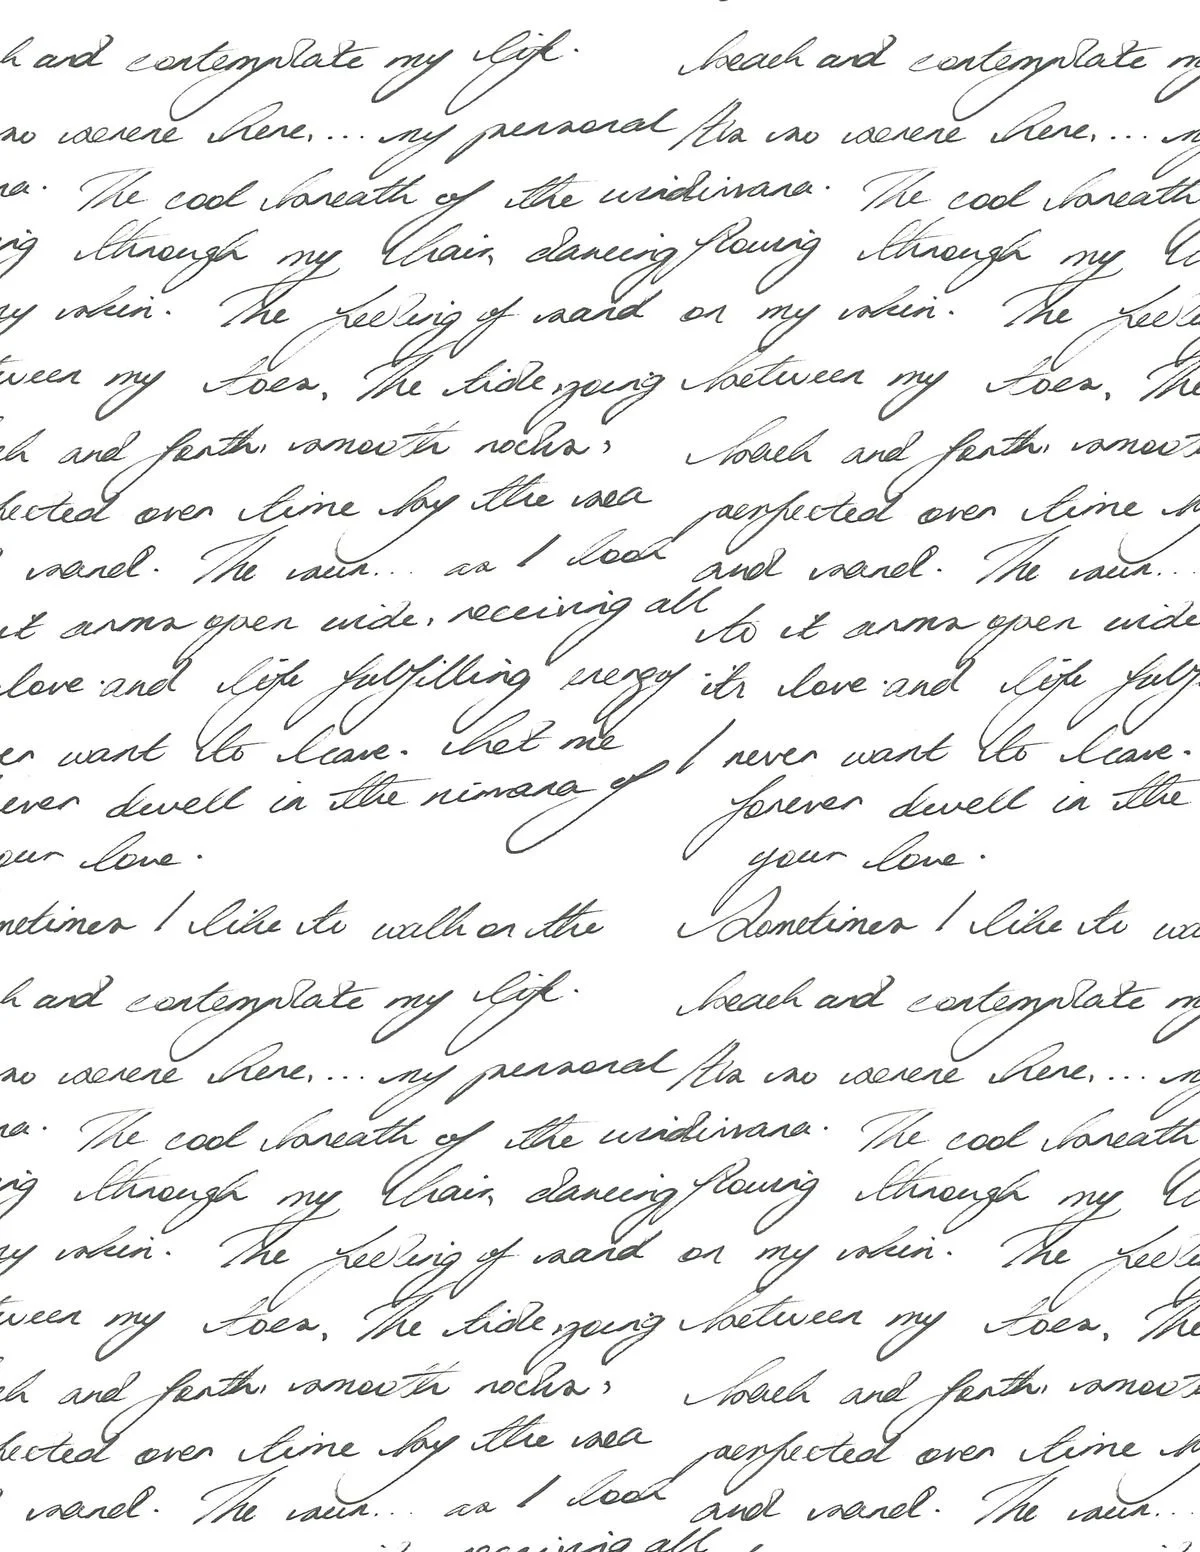 h and contemplate my life. beach and contemplate my
so serene here, ... my personal Its so serene here, ... my
na. The cool breath of the wind nirvana. The cool breath
ing through my hair, dancing flowing through my
my skin. The feeling of sand on my skin. The feeli
tween my toes, The tide going between my toes, The
ck and forth, smooth rocks, back and forth, smoot
fected over time by the sea perfected over time
sand. The sun... as I look and sand. The sun...
it arms open wide, receiving all to it arms open wide
love and life fulfilling energy its love and life fulf
er want to leave. Let me I never want to leave.
ever dwell in the nirvana of forever dwell in the
our love. your love.
metimes I like to walk on the Sometimes I like to wa
h and contemplate my life. beach and contemplate my
so serene here, ... my personal Its so serene here, ... my
na. The cool breath of the wind nirvana. The cool breath
ing through my hair, dancing flowing through my
my skin. The feeling of sand on my skin. The feeli
tween my toes, The tide going between my toes, The
ck and forth, smooth rocks, back and forth, smoot
fected over time by the sea perfected over time
sand. The sun... as I look and sand. The sun...
receiving all